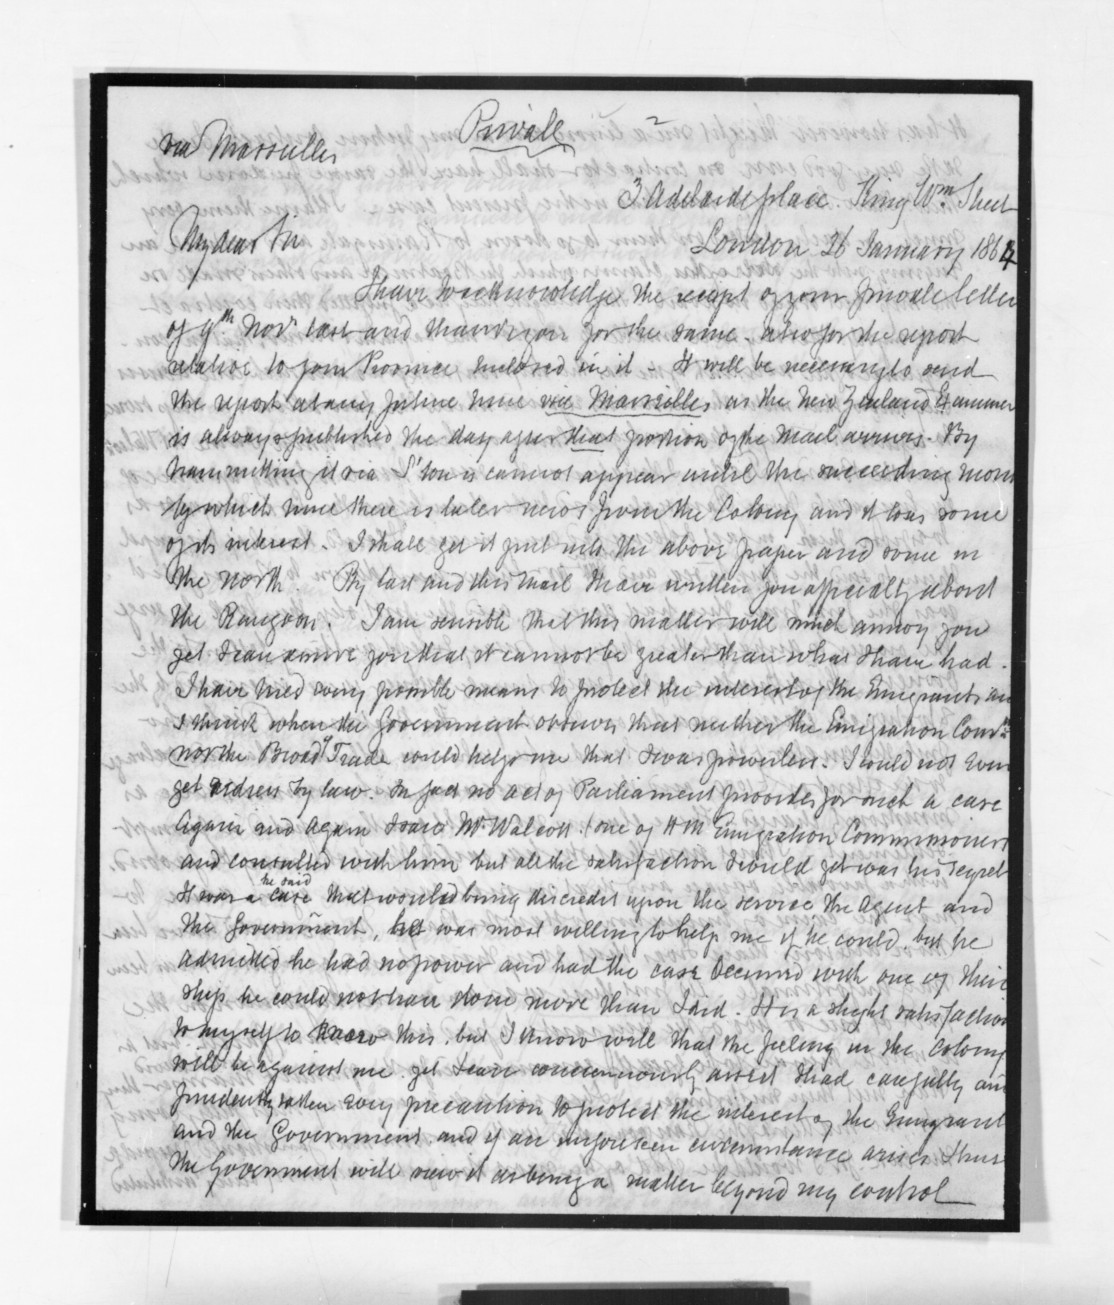 Private
via Marseilles
3 Adelaide place. King Wm Street
My dear Sir
London 26 January 1864
I have to acknowledge the receipt of your private letter
of 9th Novr last and thank you for the same. also for the report
relative to your Province enclosed in it - It will be necessary to send
the report at any future time via Marseilles as the New Zealand Examiner
is always published the day after that portion of the Mail arrives. By
transmitting it via S'ton it cannot appear until the succeeding month
by which time there is later news from the Colony and it loses some
of its interest. I shall get it put into the above paper and some in
the North. By last and this Mail I have written you officially about
the Rangoon. I am sensible that this matter will much annoy you
yet I can assure you that it cannot be greater than what I have had.
I have tried every possible means to protect the interest of the Emigrants and
I think when the Government observes that neither the Emigration Comrs
nor the Board of Trade could help me that I was powerless. I could not even
get redress by law. In fact no act of Parliament provides for such a case
Again and Again I saw Mr Walcott (one of HM Emigration Commissioners
and consulted with him but all the satisfaction I could get was his regret
It was a case he said that would bring discredit upon the service the Agent and
the Government, he was most willing to help me if he could. but he
admitted he had no power and had the case occurred with one of their
ships he could not have done more than I did. It is a slight satisfaction
to myself to know this. but I know well that the feeling in the Colony
will be against me. yet I can conscientiously assert I had carefully and
prudently taken every precaution to protect the interest of the Emigrant
and the Government. and if an unforeseen circumstance arises I trust
the Government will view it as being a matter beyond my control